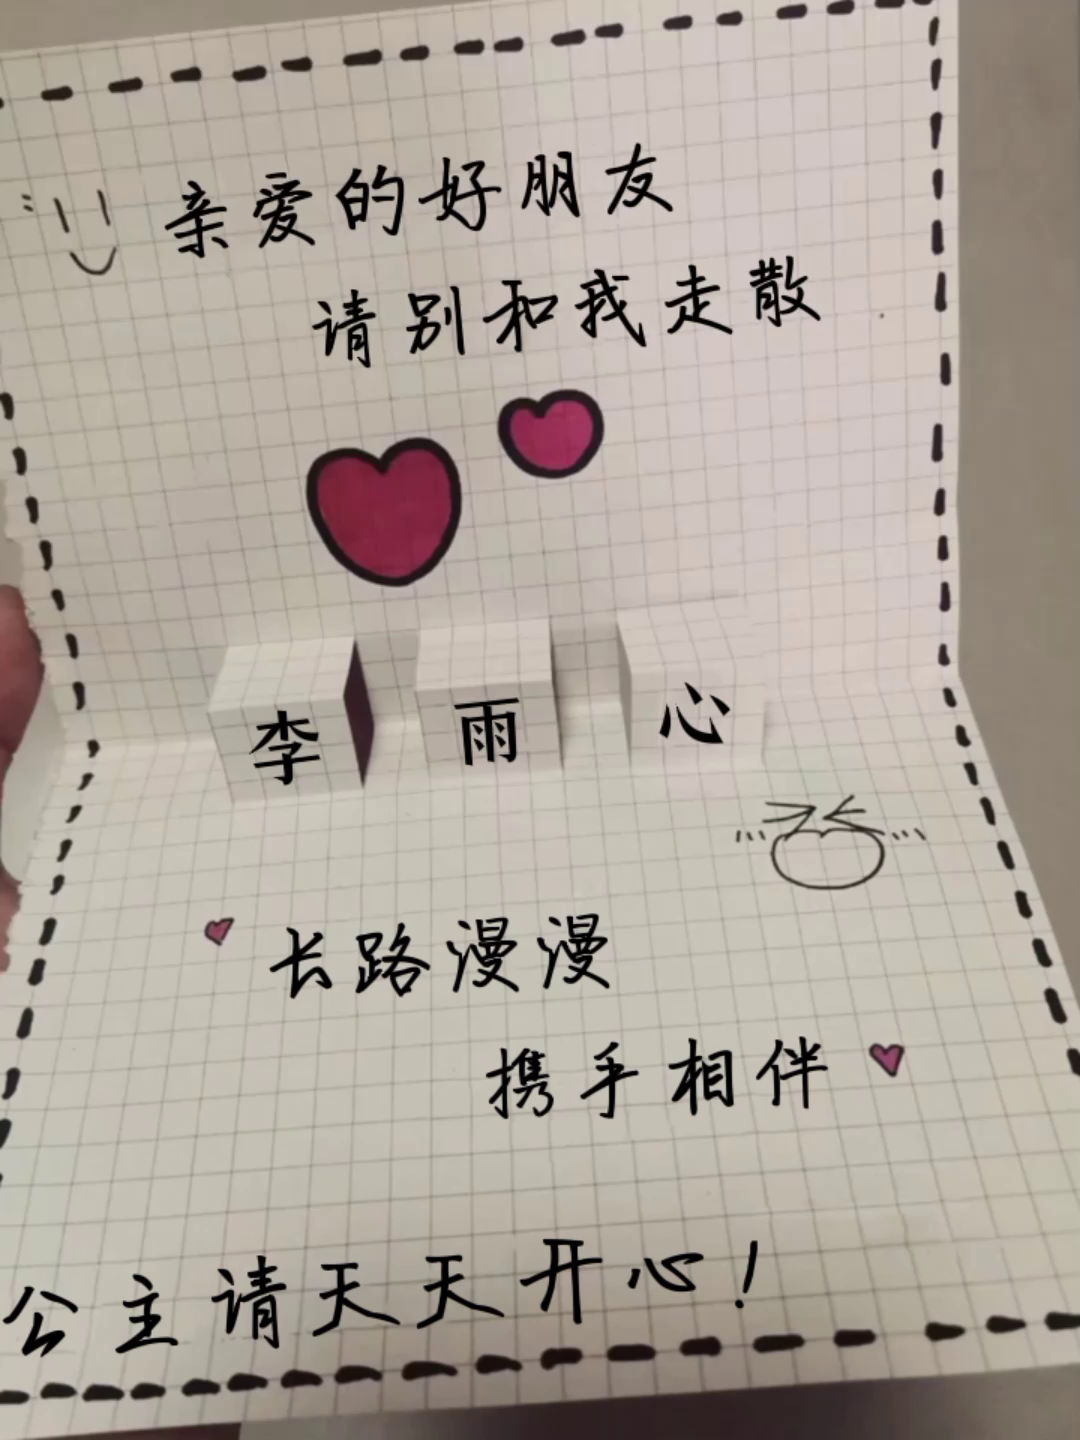 亲爱的好朋友
请别和我走散
李雨心
长路漫漫
携手相伴
公主请天天开心！